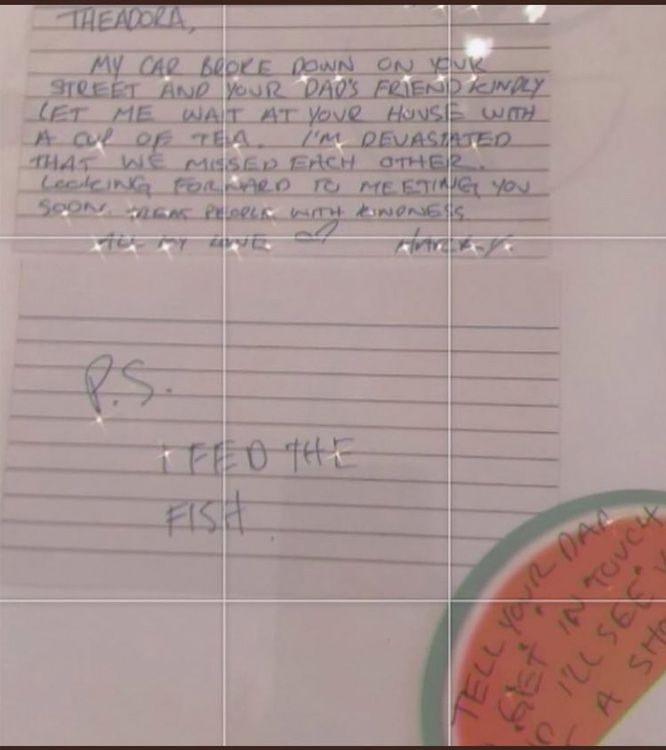 THEADORA,
MY CAR BROKE DOWN ON YOUR
STREET AND YOUR DAD'S FRIEND KINDLY
LET ME WAIT AT YOUR HOUSE WITH
A CUP OF TEA. I'M DEVASTATED
THAT WE MISSED EACH OTHER.
LOOKING FORWARD TO MEETING YOU
SOON. TREAT PEOPLE WITH KINDNESS
ALL MY LOVE
P.S.
I FED THE
FISH.
TELL YOUR DAD
GET IN TOUCH
I'LL SEE
A